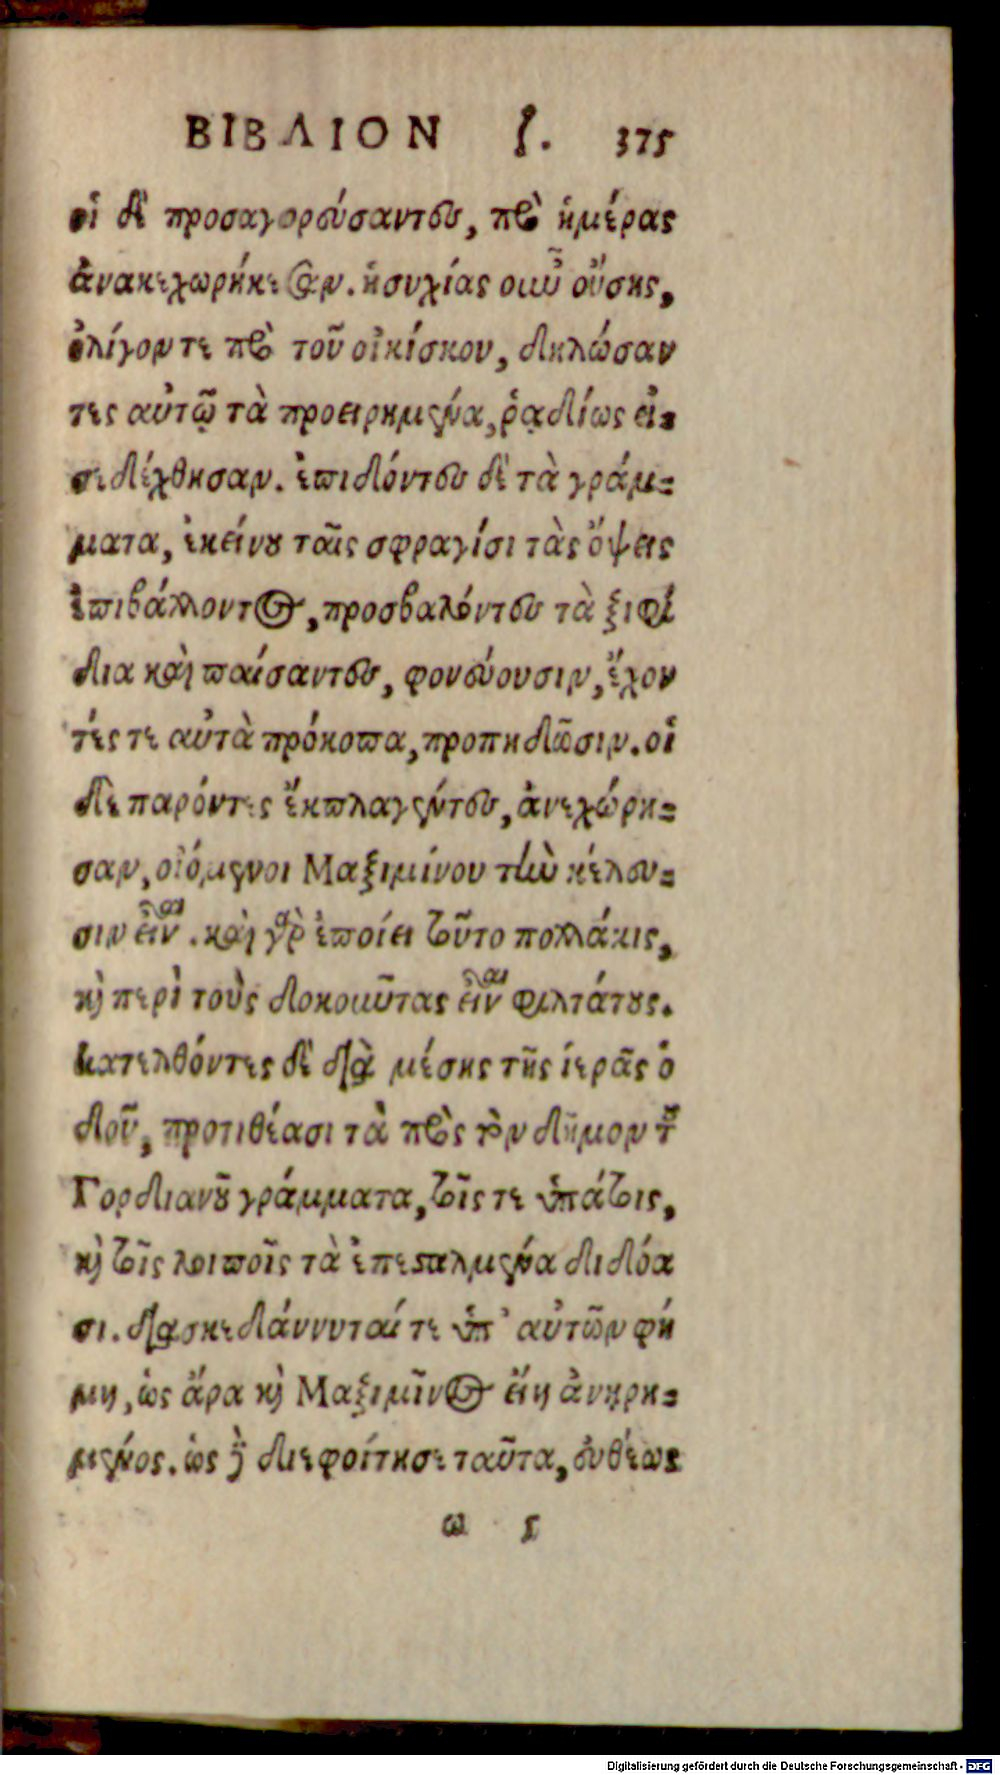 ΒΙΒΛΙΟΝ ζ. 375
οἱ δὲ προσαγορεύσαντες, πρὸ ἡμέρας
ἀνακεχωρήκεσαν. ἡσυχίας οὖν οὔσης,
ὀλίγον τε πρὸ τοῦ οἰκίσκου, δηλώσαν
τες αὐτῷ τὰ προειρημένα, ῥᾳδίως εἰ-
σεδέχθησαν. ἐπιδόντες δὲ τὰ γράμ-
ματα, ἐκείνου ταῖς σφραγίσι τὰς ὄψεις
ἐπιβάλλοντος, προσβαλόντες τὰ ξιφί
δια καὶ παίσαντες, φονεύουσιν, ἔχον
τές τε αὐτὰ πρόκοπα, προπηδῶσιν. οἱ
δὲ παρόντες ἐκπλαγέντες, ἀνεχώρη-
σαν, οἰόμενοι Μαξιμίνου τὴν κέλευ-
σιν εἶναι. καὶ γὰρ ἐποίει τοῦτο πολλάκις,
καὶ περὶ τοὺς δοκοῦντας εἶναι φιλτάτους.
κατελθόντες δὲ διὰ μέσης τῆς ἱερᾶς ὁ
δοῦ, προτιθέασι τὰ πρὸς τὸν δῆμον τοῦ
Γορδιανοῦ γράμματα, τοῖς τε ὑπάτοις,
καὶ τοῖς λοιποῖς τὰ ἐπεσταλμένα διδόα
σι. διασκεδάννυταί τε ὑπ' αὐτῶν φή
μη, ὡς ἄρα καὶ Μαξιμῖνος εἴη ἀνῃρη-
μένος. ὡς δὲ διεφοίτησε ταῦτα, εὐθέως
ω 5
Digitalisierung gefördert durch die Deutsche Forschungsgemeinschaft - DFG